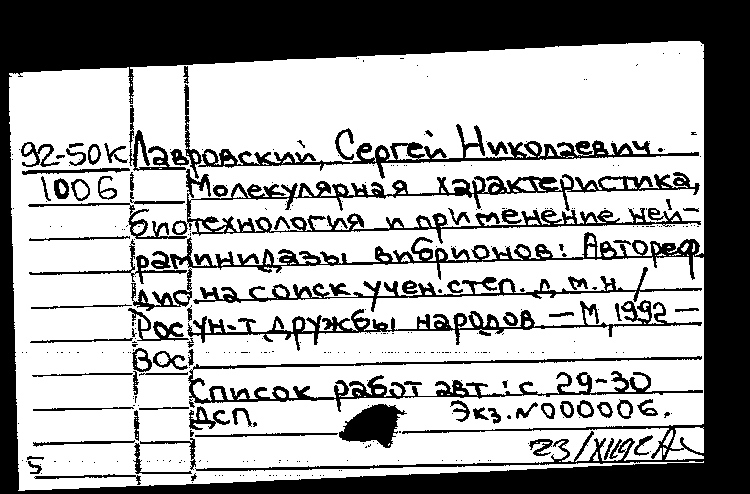 92-50К Лавровский, Сергей Николаевич.
1006 Молекулярная характеристика,
биотехнология и применение ней-
раминидазы вибрионов: Автореф.
дис. на соиск. учен. степ. д.м.н. /
Рос ун-т дружбы народов — М, 1992 —
30с
Список работ авт.: с 29-30
ДСП. Экз. N 000006.
23/XII92
5